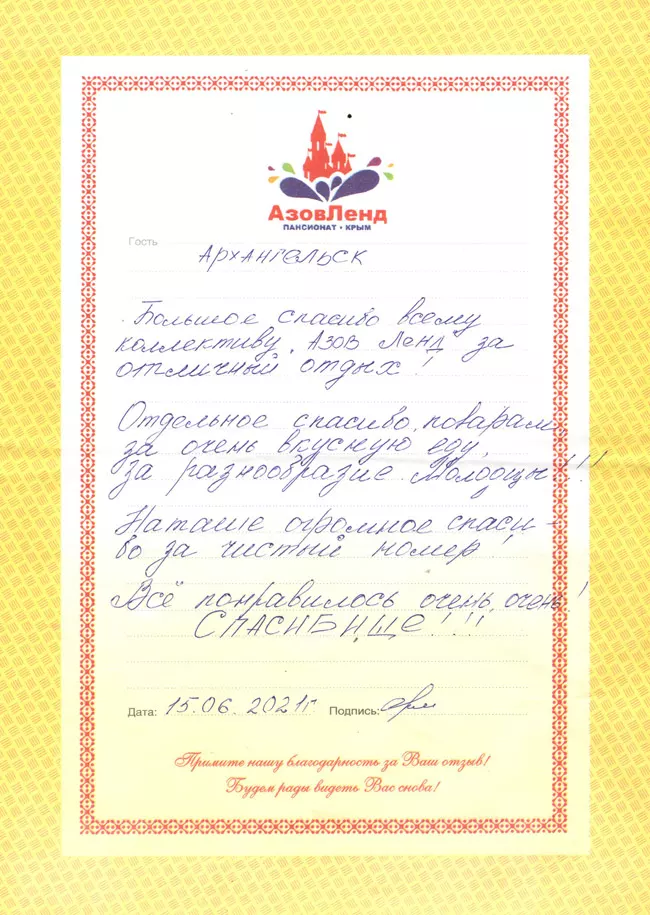 АзовЛенд
ПАНСИОНАТ • КРЫМ
Гость Архангельск
Большое спасибо всему
коллективу „Азов Ленд" за
отличный отдых!
Отдельное спасибо поварам
за очень вкусную еду,
за разнообразие. Молодцы!!!
Наташе огромное спаси-
бо за чистый номер!
Всё понравилось очень, очень!
СПАСИБИЩЕ!!!
Дата: 15.06.2021г Подпись:
Примите нашу благодарность за Ваш отзыв!
Будем рады видеть Вас снова!